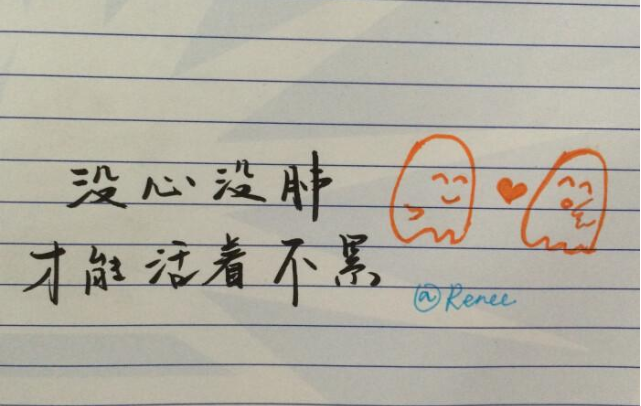 没心没肺
才能活着不累
@Renee